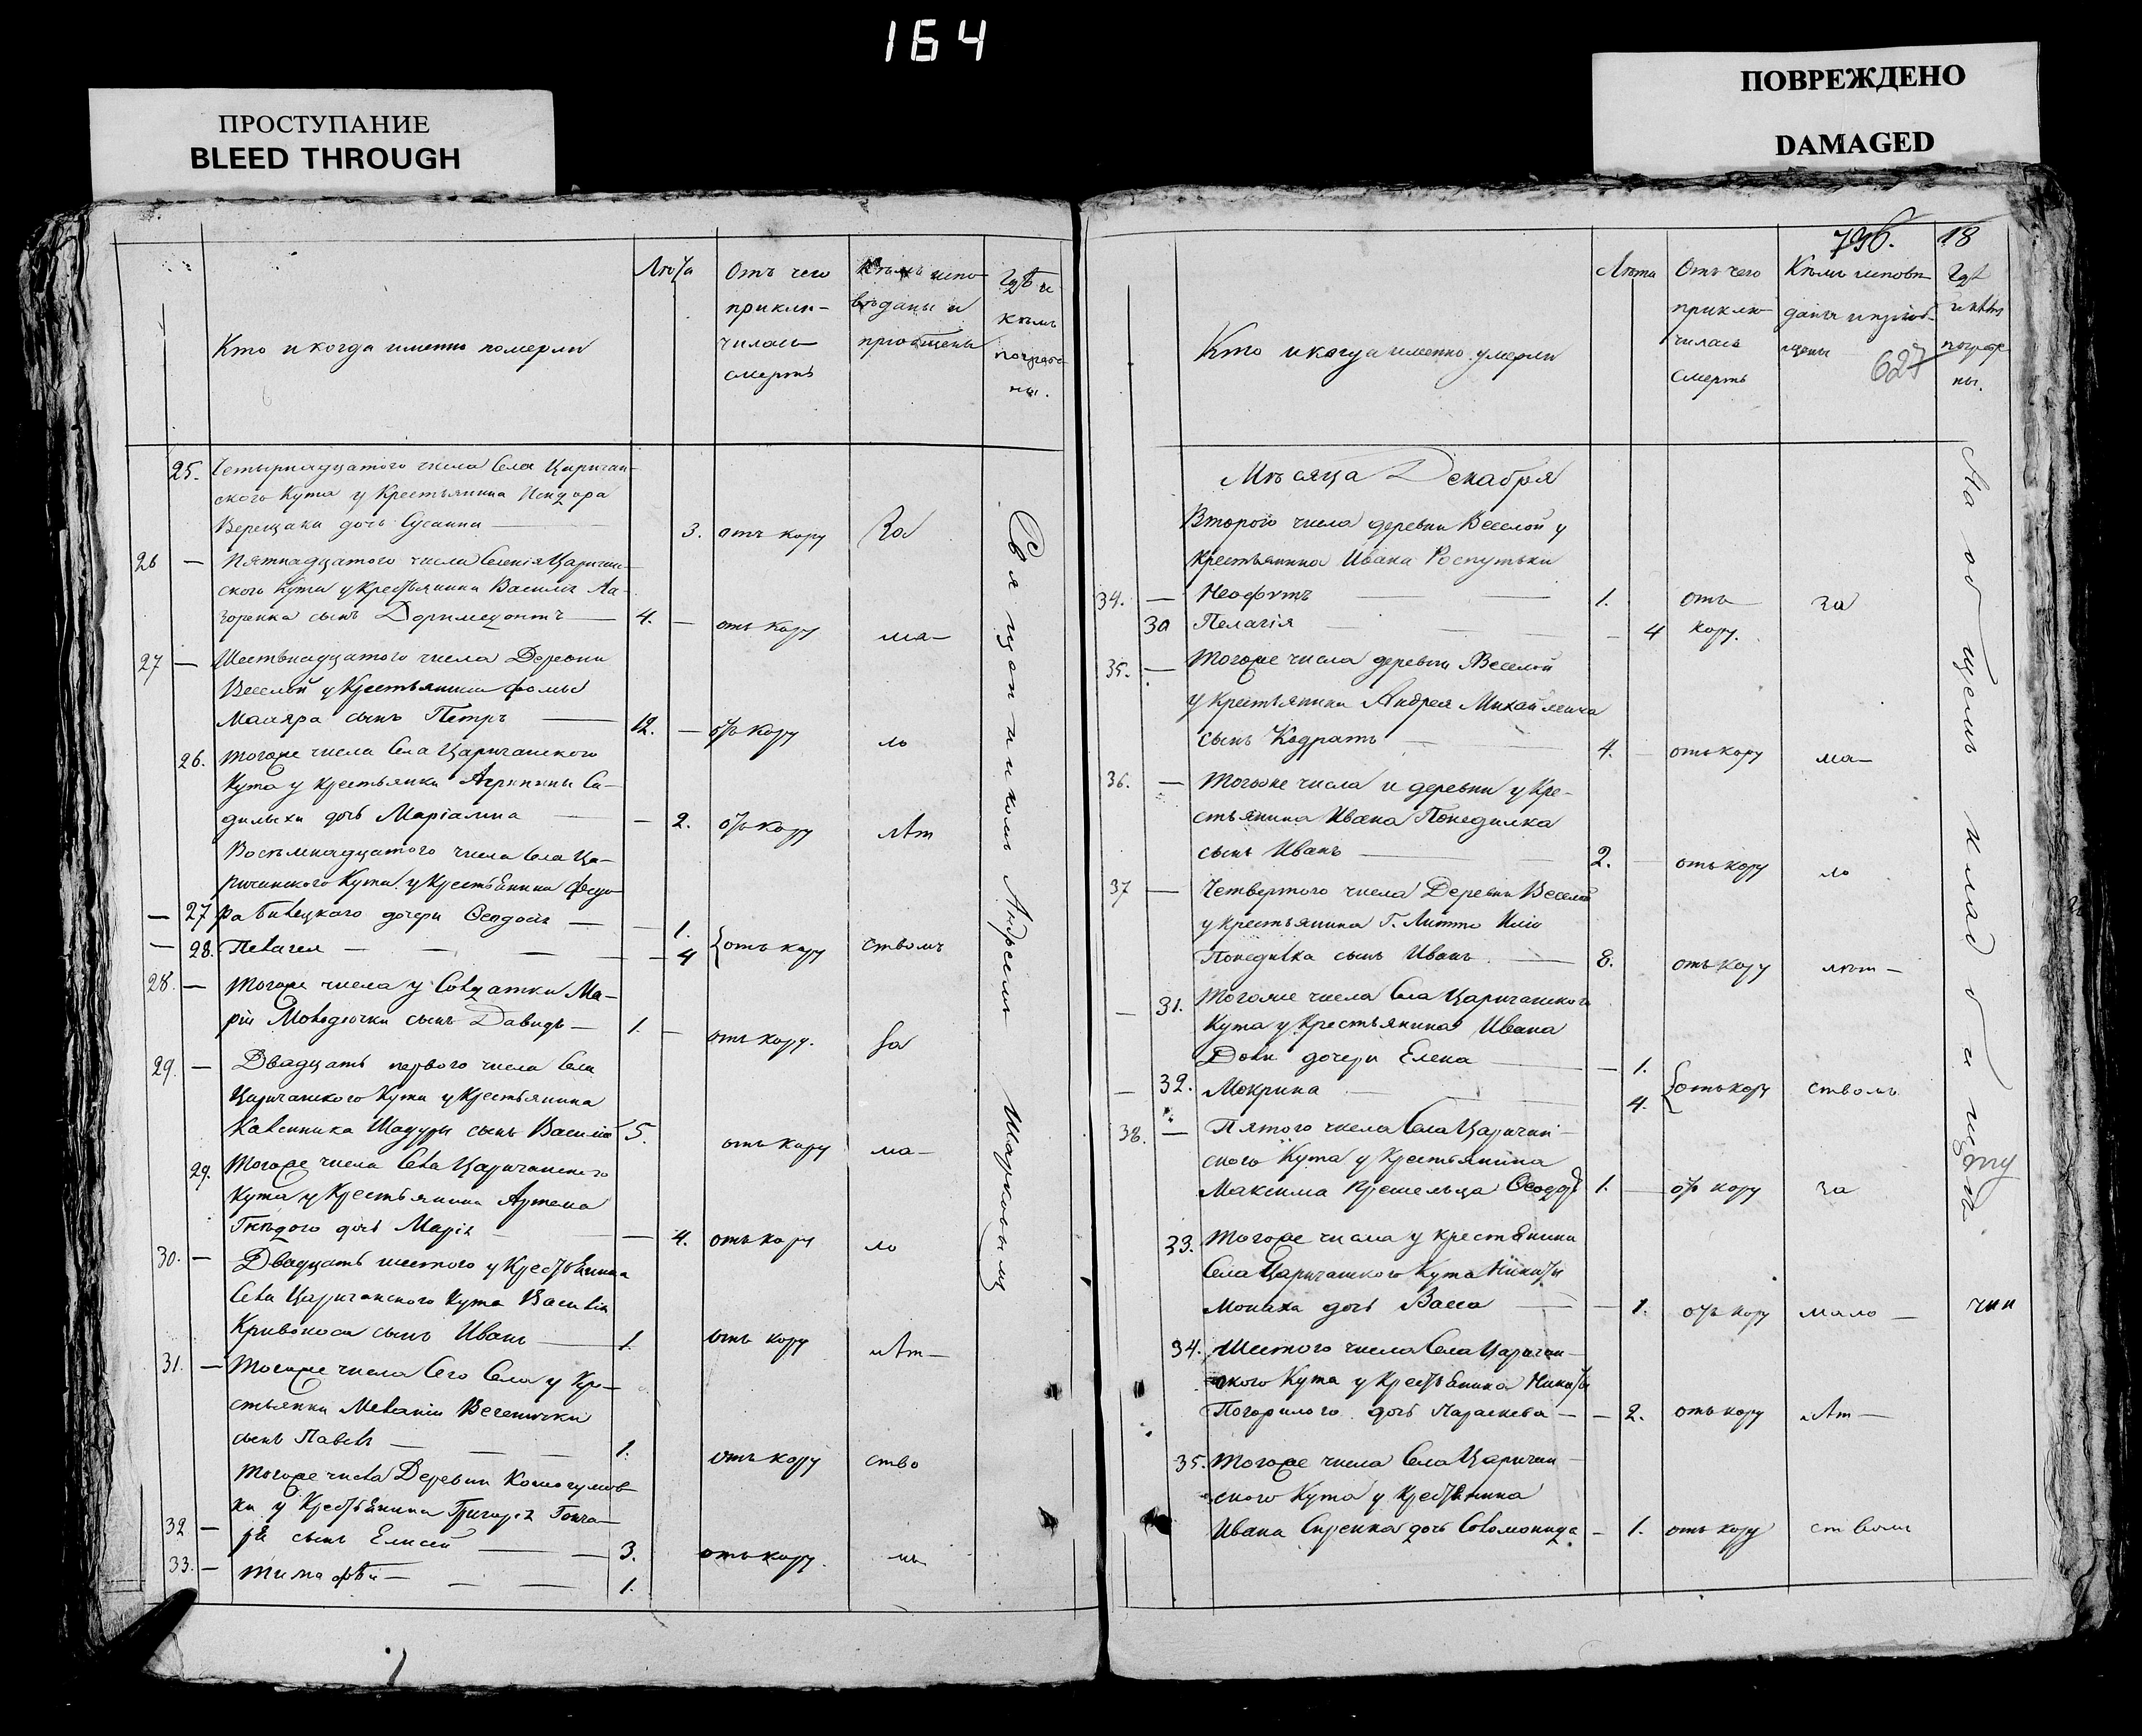 164
ПРОСТУПАНИЕ
BLEED THROUGH
ПОВРЕЖДЕНО
DAMAGED
Кто и когда именно померли
Лѣта
Отъ чего
приклю-
чилась
смерть
Кѣмъ испо-
вѣданы и
пріобщены
Гдѣ и
кѣмъ
погребе-
ны.
25. Четырнадцатого числа Села Царичан-
ского Кута у Крестьянина Исидора
Верещаки дочь Сусанна — 3. отъ кору За
26 — Пятнадцатого числа Селенія Царичан-
ского Кута у Крестьянина Василія Ла-
зоренка сынъ Доримедонтъ — 4. — отъ кору ма-
27 — Шестьнадцатого числа Деревни
Веселой у Крестьянина Фомы
Маляра сынъ Петръ — 12. — отъ кору ло
26. Тогоже числа Села Царичанского
Кута у крестьянки Агрипины Са-
дилихи дочь Маріамна — 2. отъ кору лѣт
Восемнадцатого числа Села Ца-
ричанского Кута у крестьянина Федо-
— 27 ра Билецкого дочери Феодосія — 1.
— 28. Пелагея — 4 отъ кору ствомъ
28. — Тогоже числа у Солдатки Ма-
ріи Молодючки сынъ Давидъ — 1. — отъ кору. За
29. — Двадцать первого числа Села
Царичанского Кута у Крестьянина
Шадуры сынъ Василій 5. отъ кору ма-
29. Тогоже числа Села Царичанского
Кута у Крестьянина Артема
Гнѣдого дочь Марія — 4. отъ кору ло
30. — Двадцать шестого у Крестьянина
Села Царичанского Кута Василія
Кривоноса сынъ Иванъ — 1. отъ кору лѣт-
31. — Тогоже числа Сего Села у Кре-
стьянки Меланіи
сынъ Павелъ — 1. отъ кору ство
Тогоже числа Деревни
ки у Крестьянина Григорія Гонча-
32 — ра сынъ Елисей — 3. отъ кору. мъ
33. — Тимофѣй — 1.
Священникомъ Андреемъ Шарковымъ
796. 18
627
Кто и когда именно умерли
Лѣта
Отъ чего
приклю-
чилась
смерть
Кѣмъ исповѣ-
даны и пріоб-
щены
Гдѣ
и кѣмъ
погребе-
ны.
Мѣсяца Декабря
Второго числа деревни Веселой у
крестьянина Ивана Роспутьки
34. — Неофитъ — 1. отъ за
30 Пелагія — 4 кору.
35. — Тогоже числа деревни Веселой
у Крестьянина Андрея Михайленка
сынъ Кодратъ — 4. — отъ кору ма-
36. — Тогоже числа и деревни у Кре-
стьянина Ивана Понедилка
сынъ Иванъ — 2. — отъ кору ло
37 — Четвертого числа Деревни Веселой
у крестьянина Г. Литто Иліи
Понедилка сынъ Иванъ — 8. отъ кору лѣт-
— 31. Тогоже числа Села Царичанского
Кута у Крестьянина Ивана
дочери Елена — 1.
— 32. Мокрина — 4. отъ кору ствомъ
38. — Пятого числа Села Царичан-
ского Кута у Крестьянина
Максима Феодоръ 1. — отъ кору за
33. Тогоже числа у крестьянина
Села Царичанского Кута Никиты
Монаха дочь Васса — 1. отъ кору мало —
34. Шестого числа Села Царичан-
ского Кута у Крестьянина Никиты
Погорилого дочь Параскева — 2. отъ кору лѣт —
35. Тогоже числа Села Царичан-
ского Кута у Крестьянина
Ивана Сиренка дочь Соломонида — 1. отъ кору ствомъ
На общемъ кладбищу